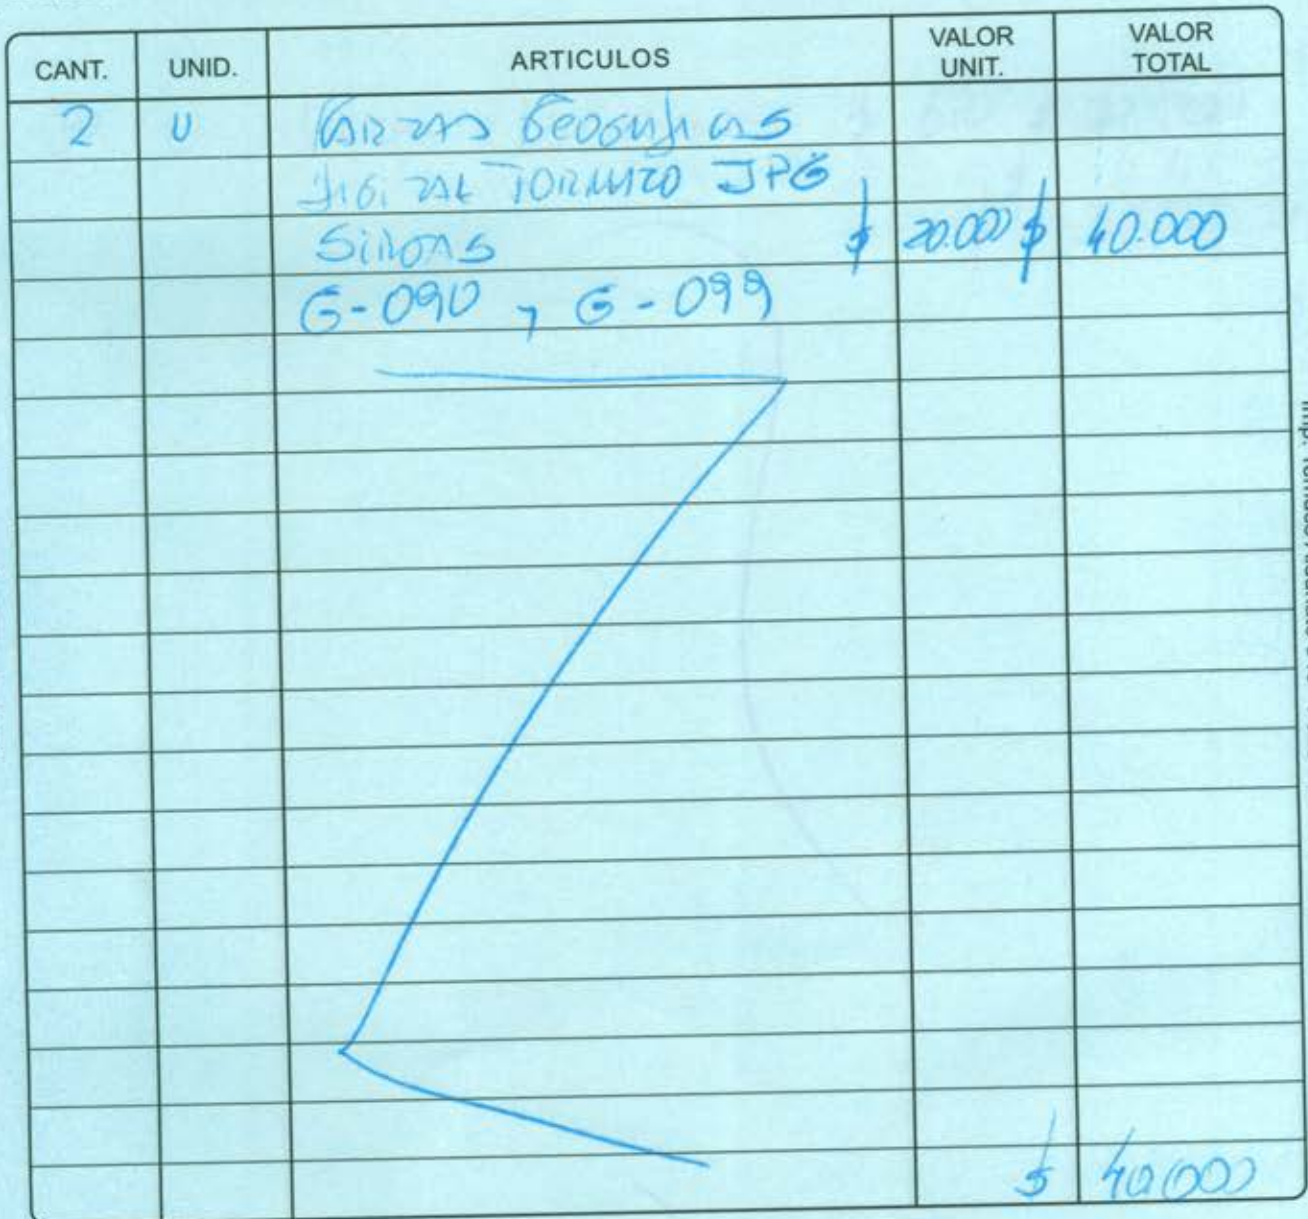 CANT. UNID. ARTICULOS VALOR UNIT. VALOR TOTAL
2 U Cartas Geograficas
Digital Formato JPG
$ 20.000 $ 40.000
G-090 y G-099
$ 40.000
Imp.